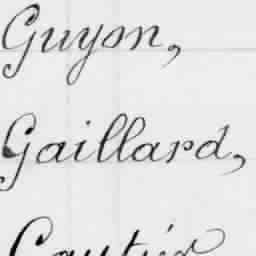 Guyon,
Gaillard,